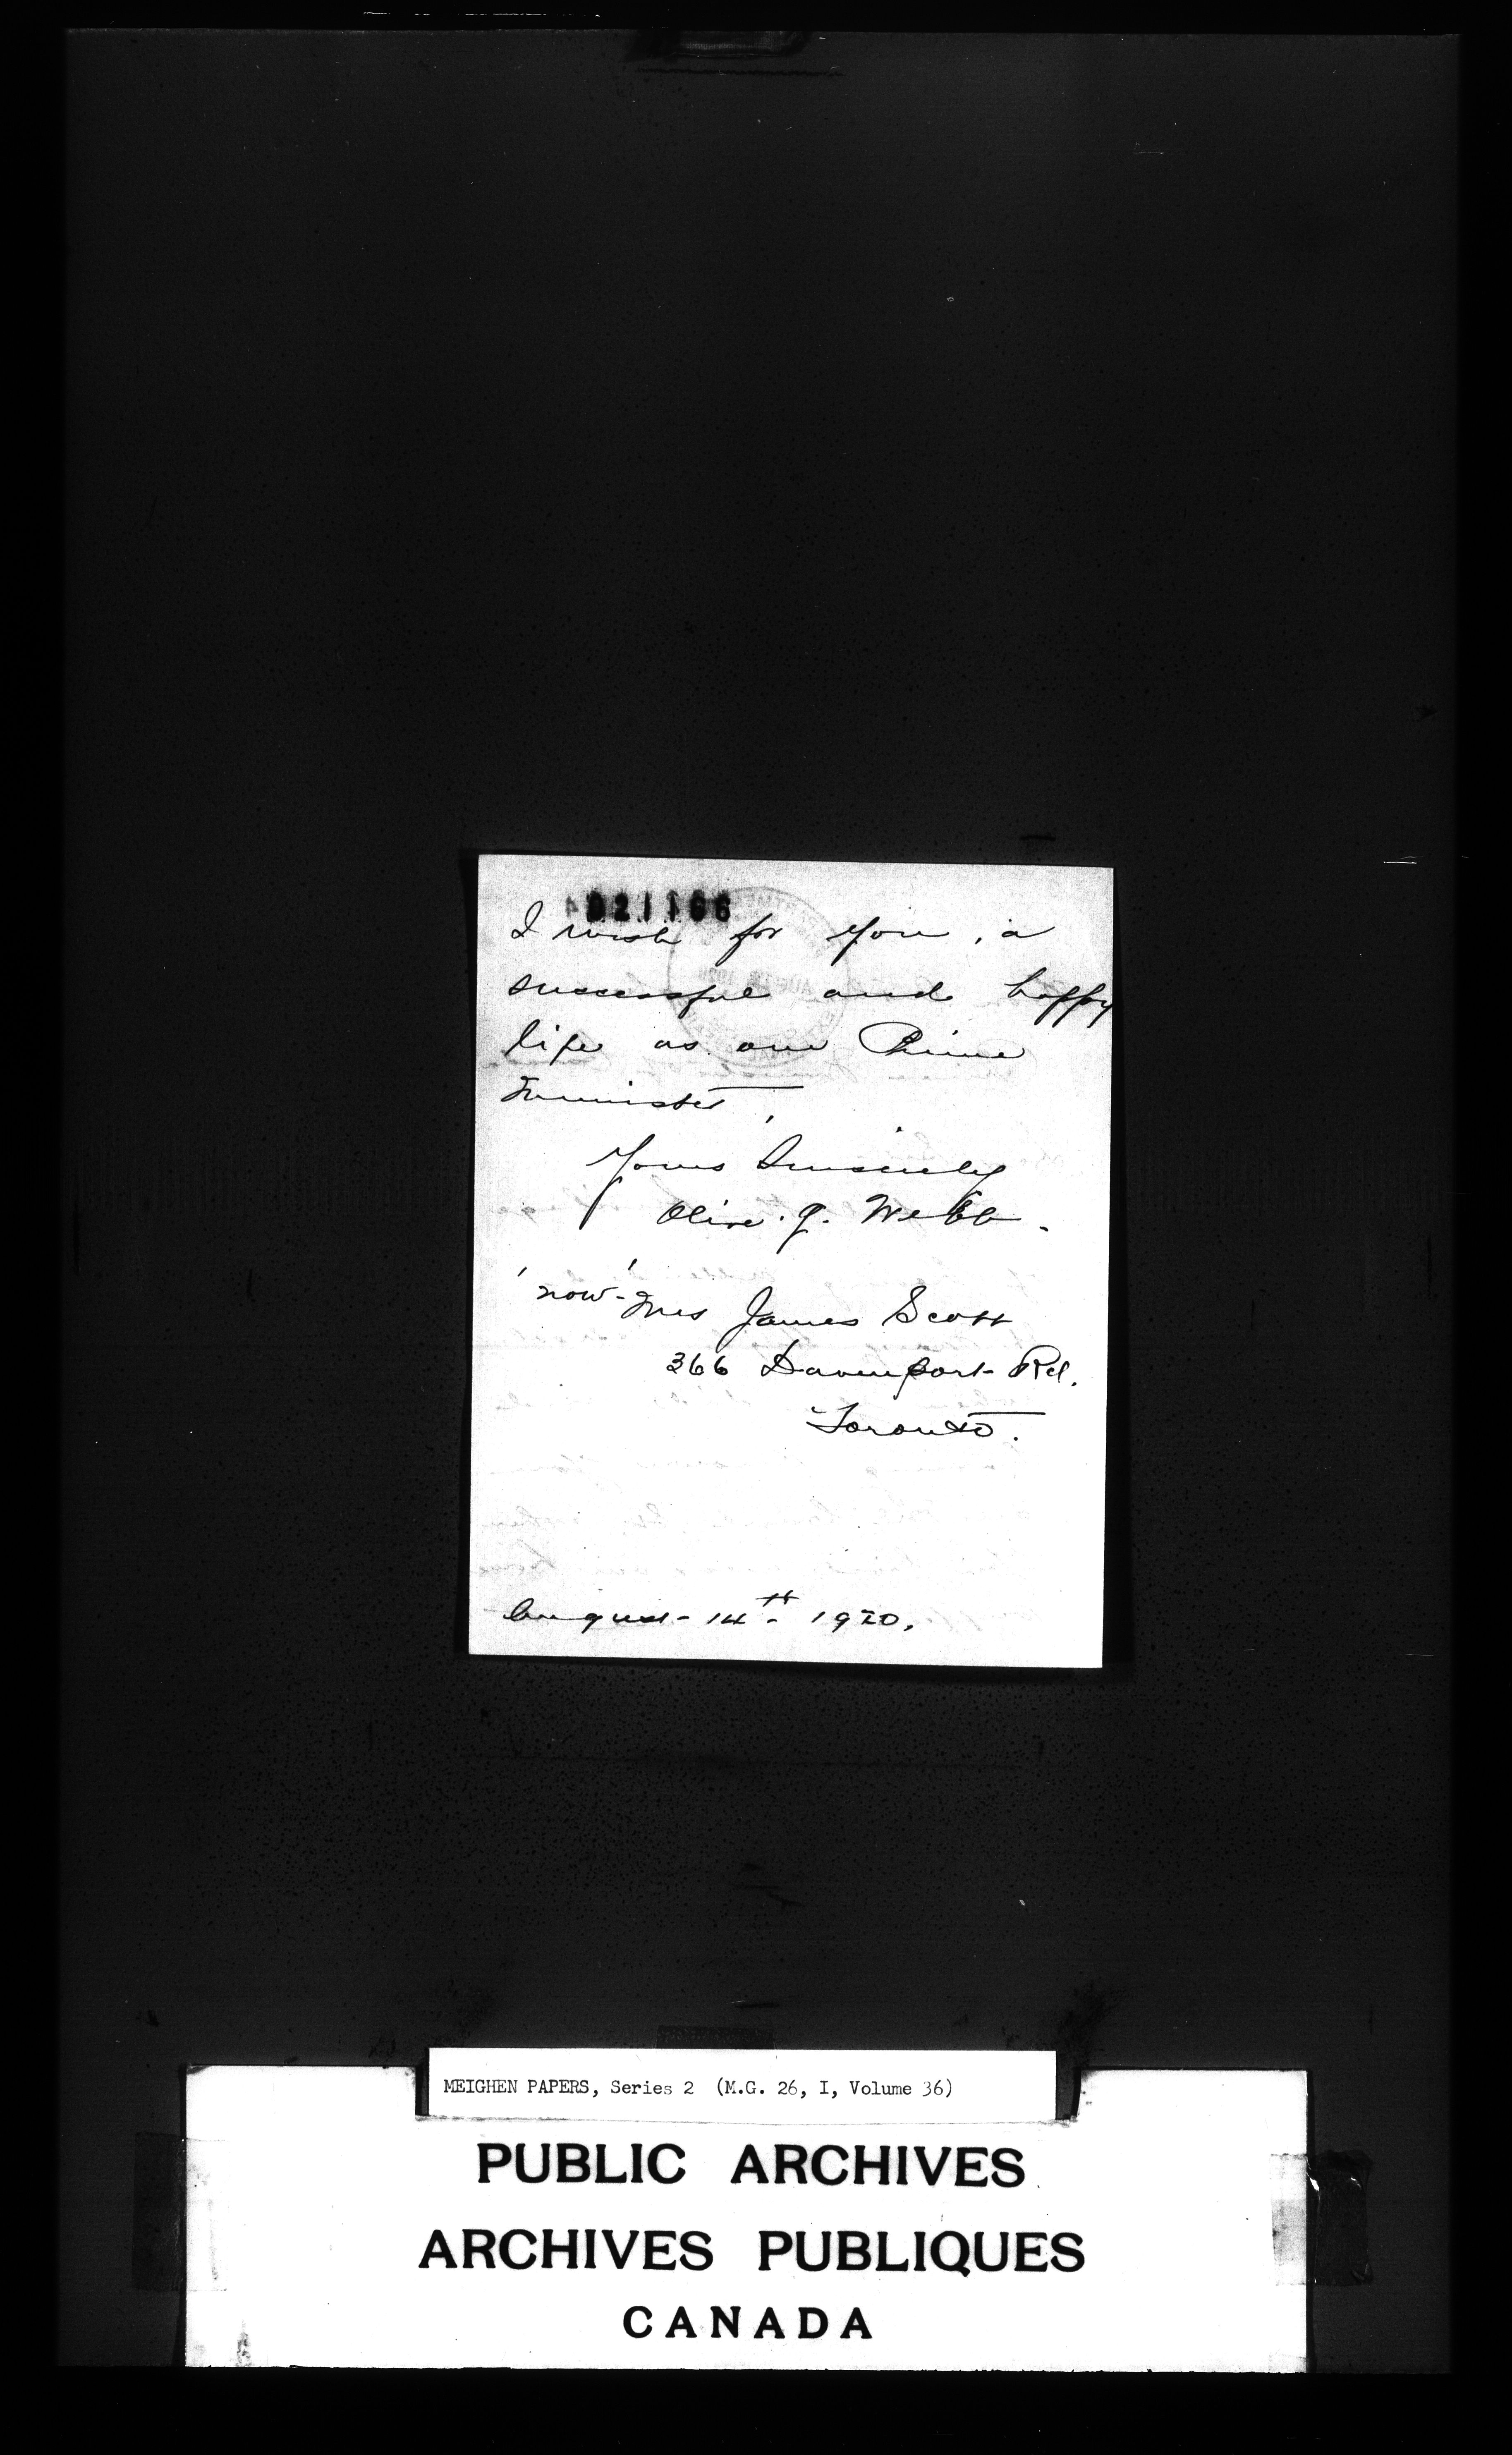 021166
I wish for you, a
successful and happy
life as our Prime
Minister,
Yours Sincerely
Olive. J. Webb.
'now'- Mrs James Scott
366 Davenport Rd.
Toronto.
August- 14th 1920.
MEIGHEN PAPERS, Series 2 (M.G. 26, I, Volume 36)
PUBLIC ARCHIVES
ARCHIVES PUBLIQUES
CANADA